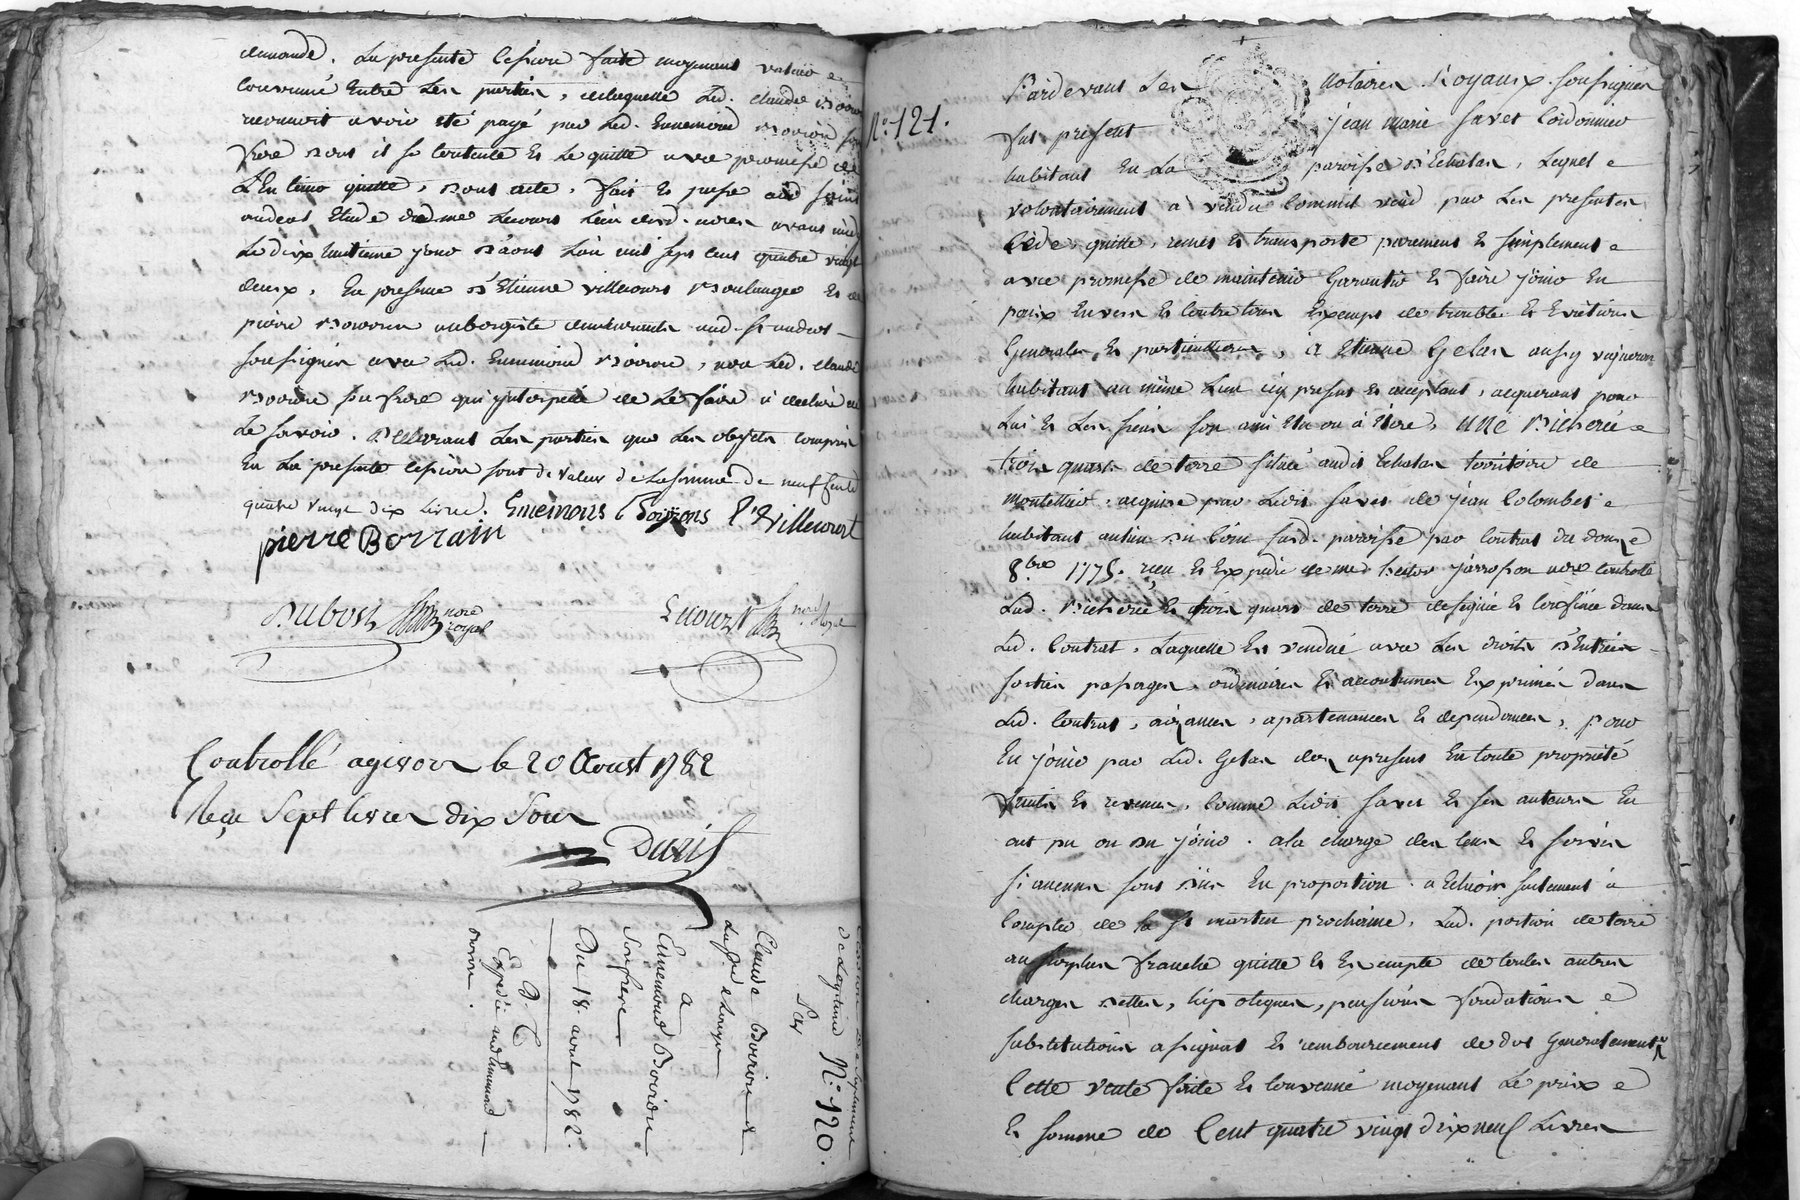 demande. La presente cession faite moyenant valeur
convenue Entre Les parties, delaquelle Led. Claude
reconnoit avoir eté payé par Led. Ennemond Boiron son
frere dont il se contente Et Le quitte avec promesse de
L'En tenir quitte, dont acte, fait Et passé aud. Saint
andeol Etude dud. me Lecourt L'un desd. notres avant midy
Le dix huitieme jour d'aout L'an mil sept cent quatre vingt
deux, En presence d'Etienne villecourt Boulanger Et de
pierre aubergiste demeurants aud. St andeol
soussignés avec Led. Ennemond Boiron, non Led. Claude
Boiron son frere qui jnterpellé de Le faire a declaré ne
Le savoir. Declarant Les parties que Les objets compris
En La presente cession sont de valeur de La somme de neuf cent
quatre vingt dix Livres. Enemons Boirons E. Villecourt
pierre Borrain
Dubost nore royal
Lecourt
Controllé a givors le 20 Aoust 1782
Reçu Sept livres dix Sous
Duris
De Legitime N° 120.
Par
Claude Boiron
a
Ennemond Boiron
Son frere
Du 18. aout 1782.
Expedié
N° 121.
Pardevant Les notaires Royaux soussignés
fut present jean marie favet Cordonnier
habitant En La paroisse d'Echalas, Lequel
volontairement a vendu comme il vend par Les presentes
Cède, quitte, remet Et transporte purement Et simplement
avec promesse de maintenir Garantir Et faire jöuir En
paix Envers Et Contre tous Exempt de trouble Et Evictions
Generales Et particulieres, a Etienne Gelas aussy vigneron
habitant au même Lieu icy present Et acceptant, acquerant pour
Lui Et Les siens son ami Elu ou à Elire, une Bicherée
trois quarts de terre située audit Echalas territoire de
acquise par Ledit favet de jean Colombet
habitant au lieu sud. paroisse par Contrat du douze
8.bre 1775. recu Et Expedié de me jarrosson nore Controllé
Lad. Bicherée Et trois quarts de terre designée Et Confinée dans
Led. Contrat, Laquelle Est vendue avec Les droits d'Entrées
sorties passages, ordinaires Et accoutumés Exprimés dans
Led. Contrat, aizances, apartenances Et dependances, pour
En jöuir par Led. Gelas des apresent En toute propriété
fruits Et revenus, Comme Ledit favet Et ses auteurs En
ont pu ou du jöuir. a la charge des cens Et servis
si aucuns sont düs En proportion, a Echoir seulement à
Compter de la St martin prochaine, Lad. portion de terre
au surplus franche quitte Et Exempte de toutes autres
charges dettes, hipoteques, pensions fondations
substitutions assignat Et remboursement de dot Generalement
Cette vente faite Et Convenue moyenant Le prix
Et somme de Cent quatre vingt dix neuf Livres